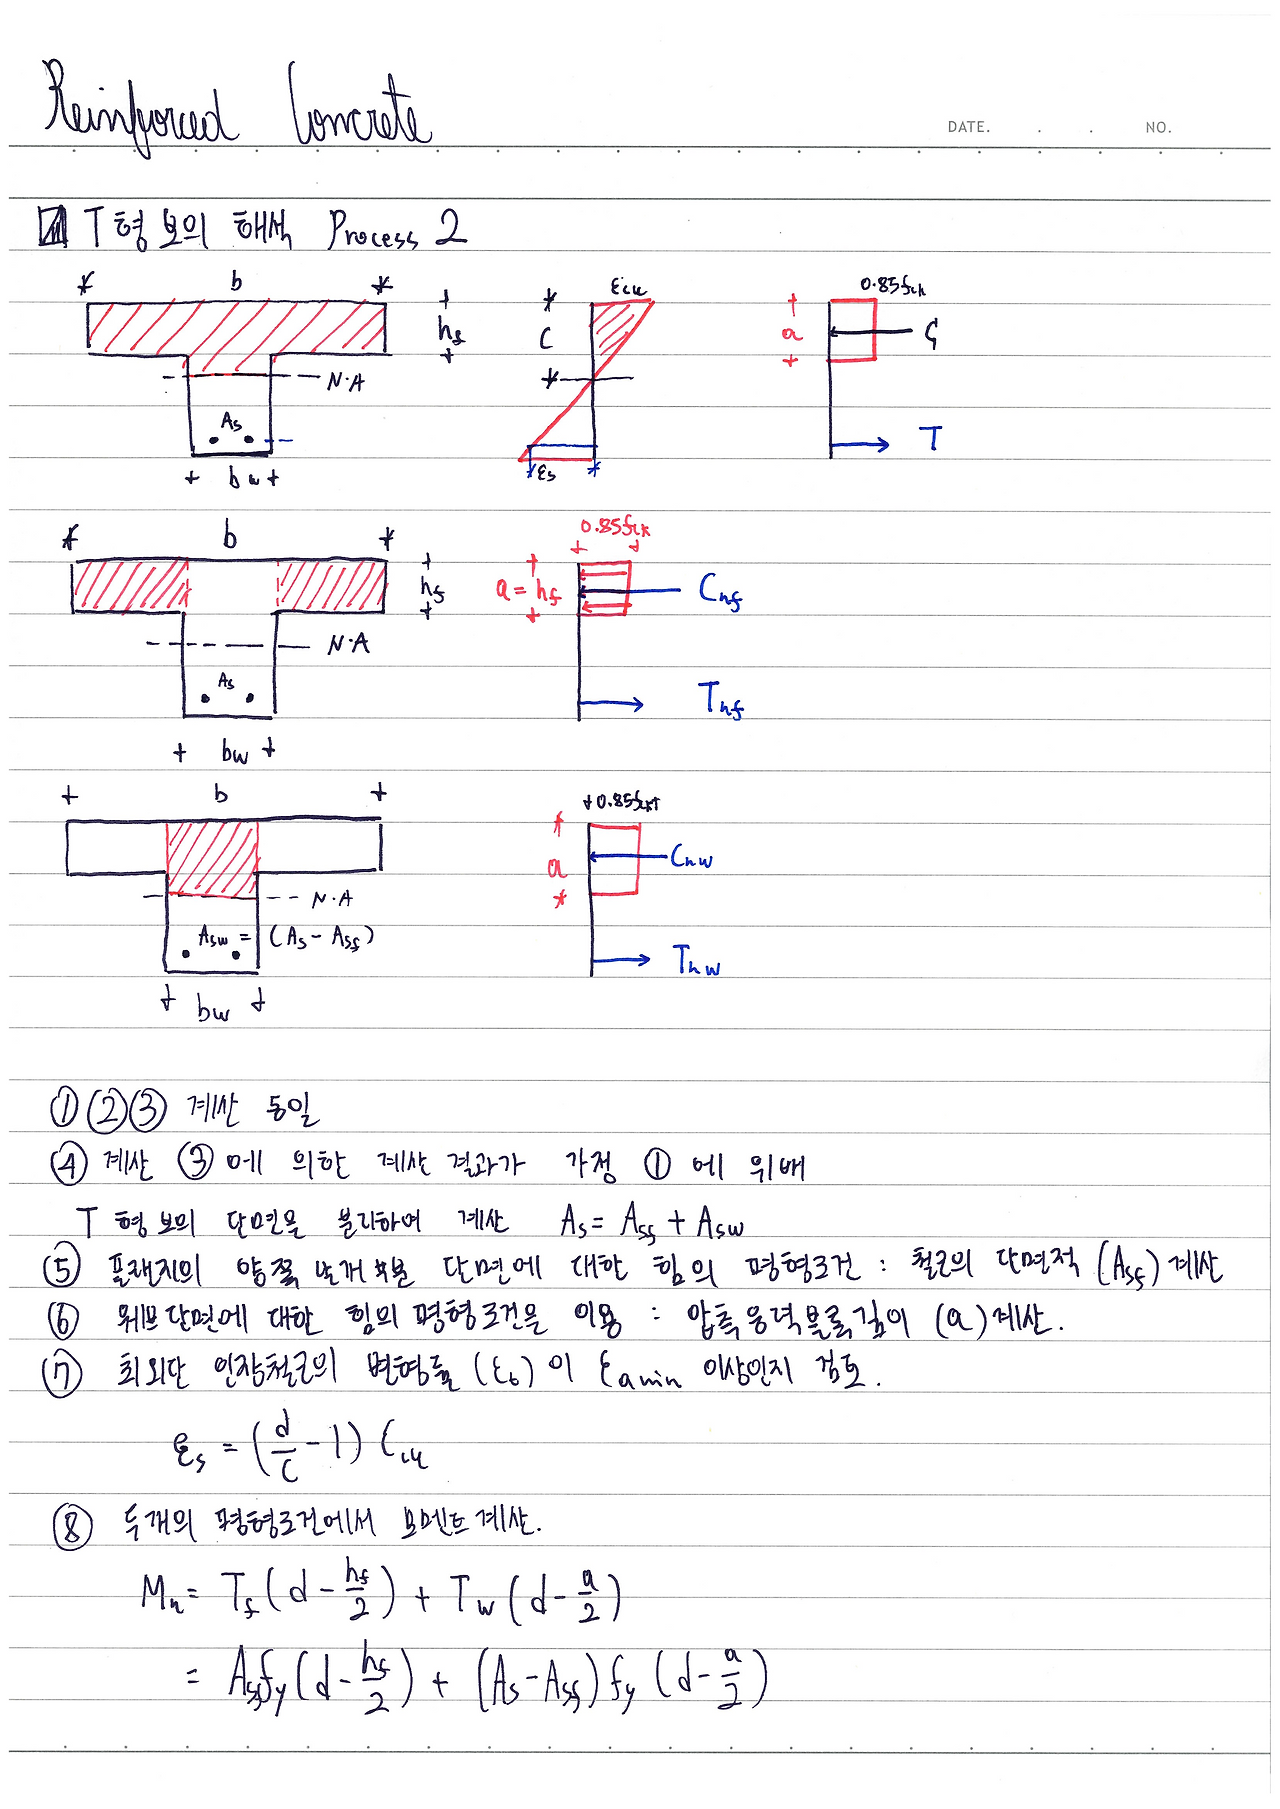 Reinforced Concrete
DATE. . . NO.
T형 보의 해석 Process 2
b
hf
N·A
As
bw
εcu
c
εs
0.85fck
a
C
T
b
hf
N·A
As
bw
0.85fck
a = hf
Cnf
Tnf
b
N·A
Asw = (As - Asf)
bw
0.85fck
a
Cnw
Tnw
① ② ③ 계산 동일
④ 계산 ③에 의한 계산 결과가 가정 ①에 위배
T형 보의 단면을 분리하여 계산 As = Asf + Asw
⑤ 플랜지의 양쪽 날개 부분 단면에 대한 힘의 평형조건 : 철근의 단면적 (Asf) 계산
⑥ 웨브 단면에 대한 힘의 평형조건을 이용 : 압축응력블록깊이 (a) 계산.
⑦ 최외단 인장철근의 변형률 (εt)이 εa min 이상인지 검토.
εs = (d/c - 1) εcu
⑧ 두개의 평형조건에서 모멘트 계산.
Mn = Tf (d - hf/2) + Tw (d - a/2)
= Asf fy (d - hf/2) + (As - Asf) fy (d - a/2)